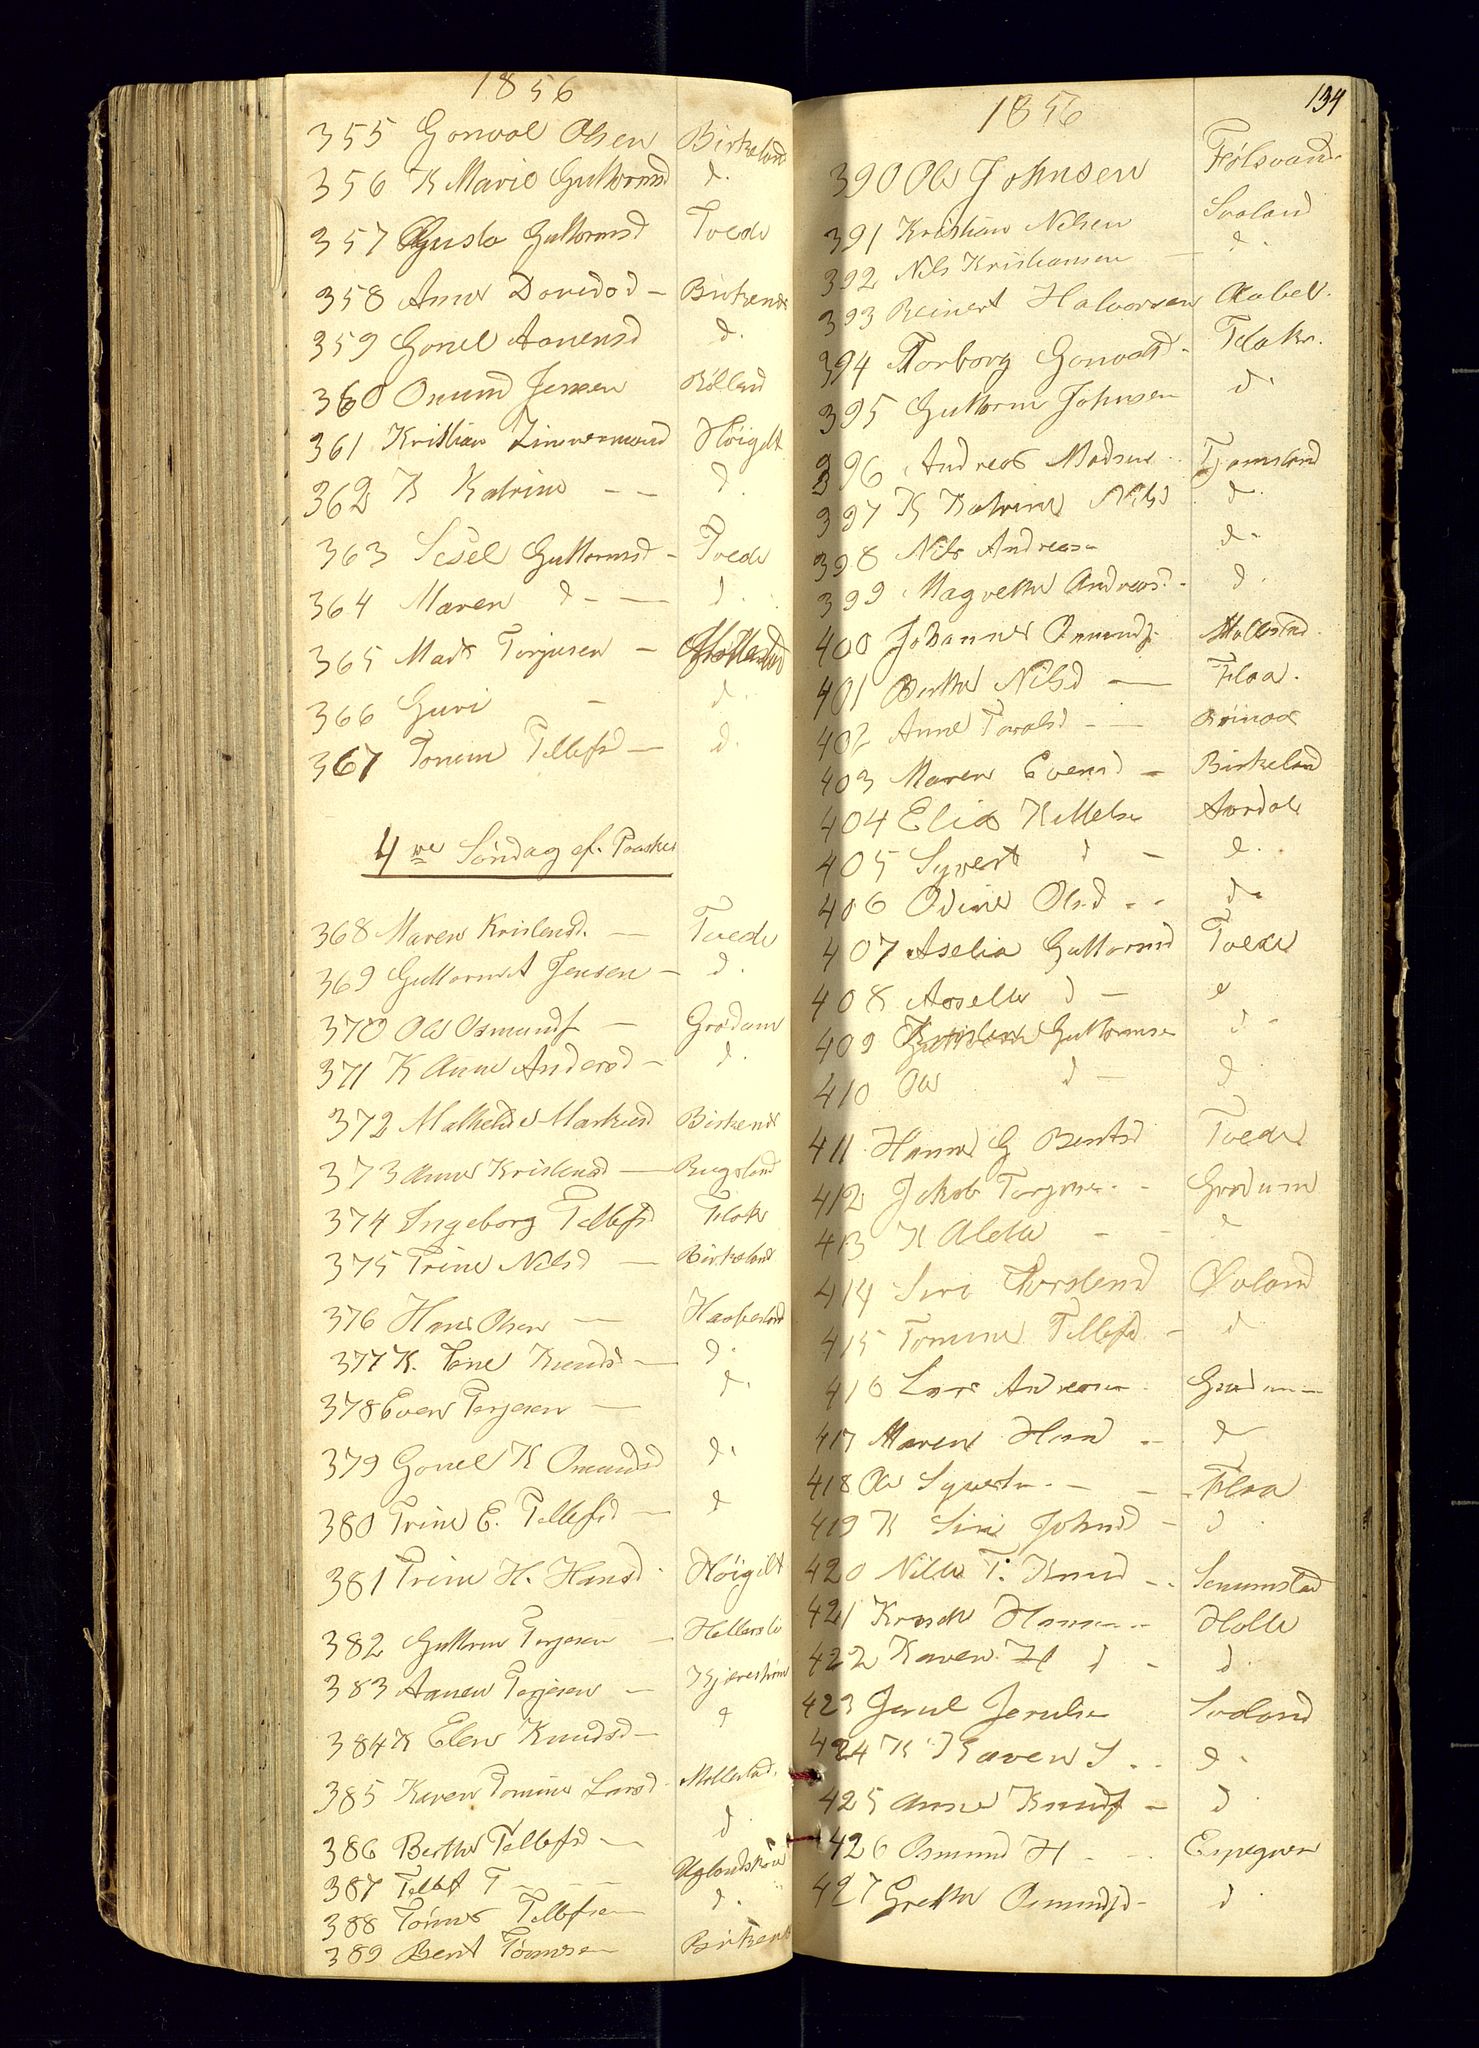 1856
355 Gonval Olsen Birkeland
356 K Marie Guttormsd d.
357 Gusta Guttormsd Tvede
358 Anne Dovedad - Birkenes
359 Gonel Aanensd d.
360 Omund Jensen
361 Kristian Zimmermand Høigilt
362 K Katrine - - d.
363 Sesel Guttormsd - Tvede
364 Maren d - - d.
365 Mads Terjusen -
366 Guri - d.
367 Tomine Tellefsd - d.
4de Søndag ef. Paaske
368 Maren Kristensd. - Tvede
369 Guttorm A Jensen - d.
370 Ole Osmunds - Grødum
371 K Anne Andersd - d.
372 Mathilde Markusd Birkenes
373 Anne Kristensd - Rugsland
374 Ingeborg Tellefsd Flake
375 Trine Nilsd - Birkeland
376 Hans Olsen - Haabesland
377 K. Tone Knuds - d.
378 Even Terjesen - d.
379 Gonel K Omundsd d.
380 Trine E. Tellefsd - d
381 Trine H. Hansd. Høigilt
382 Guttorm Terjesen - Hellersli
383 Aanen Terjesen - Kjærestrøm
384 K Elen Knudsd - d
385 Karen Tomine Larsd. Mollestad.
386 Berthe Tellefsd - d
387 Tellef T - - - Uglandskaar
388 Tønnes Tellefsen d.
389 Bent Tønnesen Birkenes
134
1856
390 Ole Johnsen
391 Kristian Nilsen Svaland
392 Nils Kristiansen - d.
393 Reinert Halvorsen Aabel.
394 Torborg Gonvalsd. Flake.
395 Guttorm Johnsen d.
396 Andreas Madsen. Tjomsland
397 K Katrine Nilsd d.
398 Nils Andreasn d.
399 Magrethe Andreasd. - d.
400 Johannes Omunds. Mollestad.
401 Berthe Nilsd - Flaa.
402 Anne Tovalsd - -
403 Maren Evensd - Birkeland
404 Elias Kittelsn Aardal
405 Syvert d - d.
406 Odine Olsd - - d.
407 Aselia Guttormsd Tvede
408 Asselle d - d
409 Guttormsen d -
410 Ole d - d
411 Hanne G Bentsd Tvede
412 Jakob Torgrims - - Grødum
413 K Aleth - - d
414 Siri Torstensd Øvland
415 Tomine Tellefsd. - d
416 Lars Andreasn. Grødum -
417 Maren Hansd - d
418 Ole Syvertsn - - Flaa
419 K Siri Johnsd - d.
420 Nille T. Knuds - . Senumstad
421 Hansen - - Holte
422 Karen H d - d.
423 Jerul Jerulsn Svaland
424 K Karen S - . d.
425 Anne Knuds - d.
426 Osmund H - - Espegren
427 Grethe Osmundsd - d.